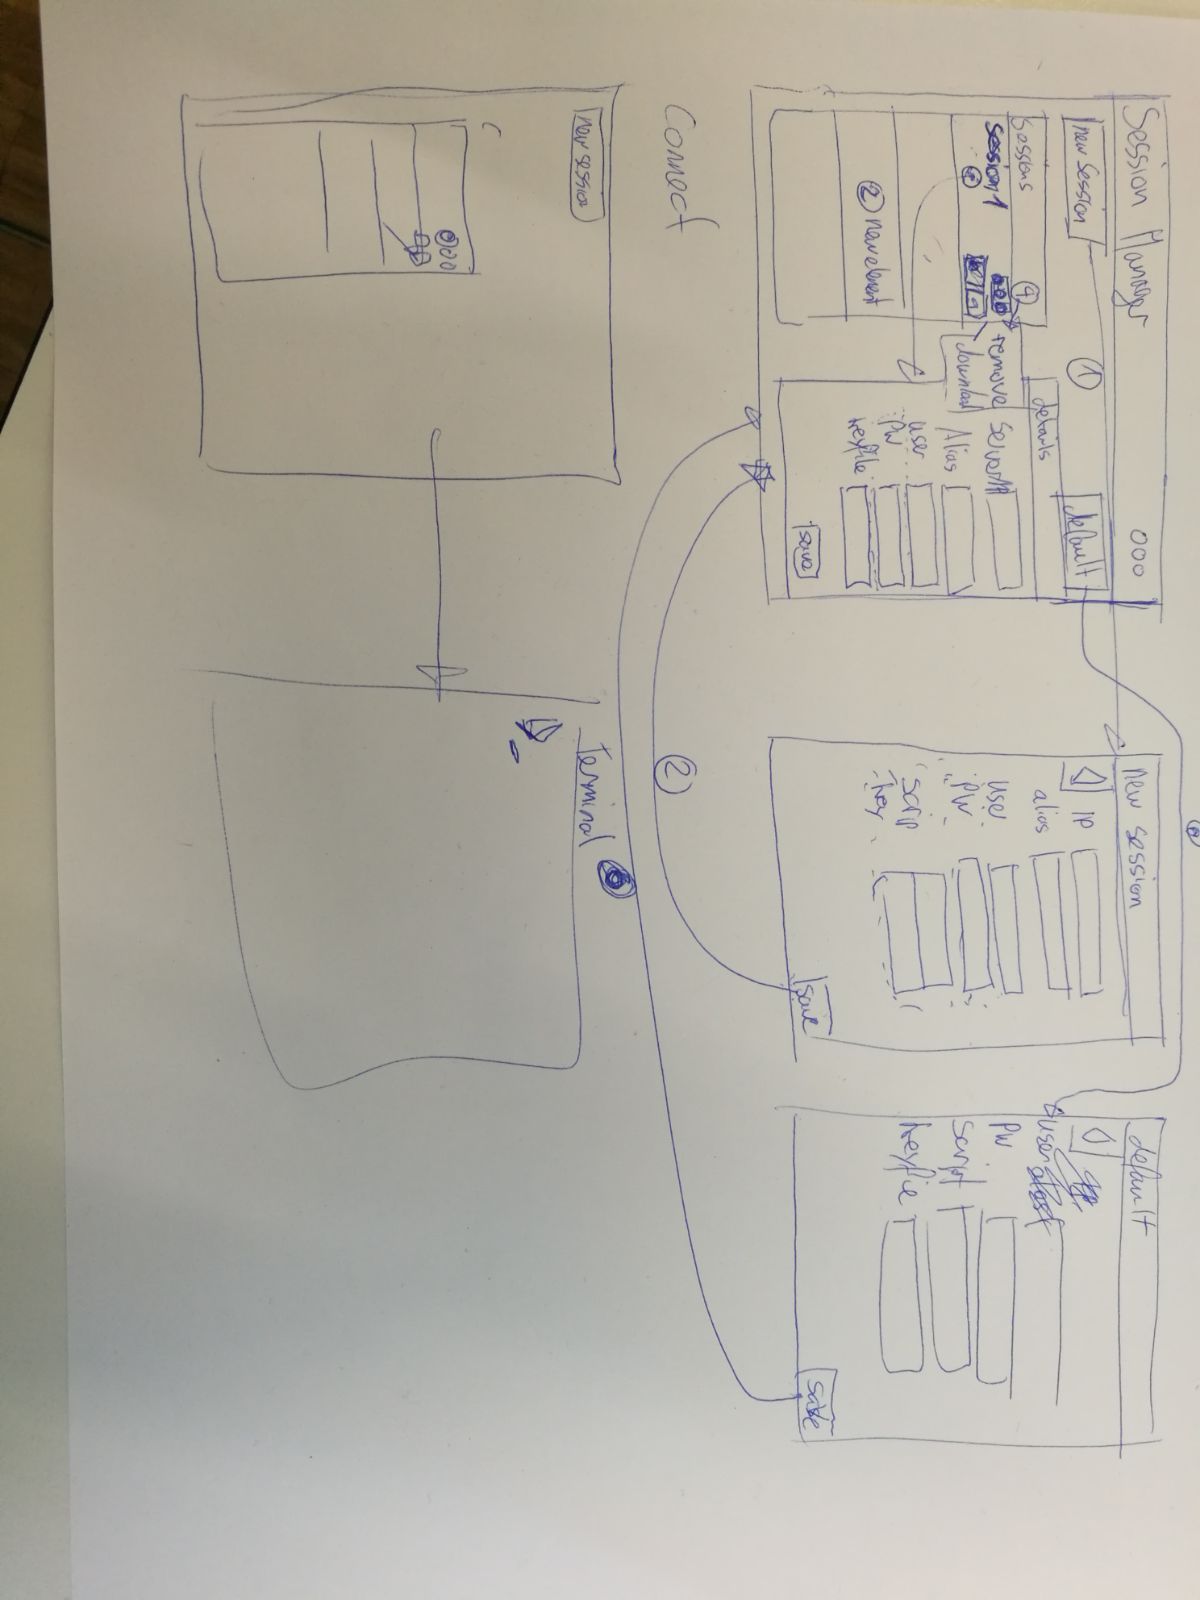 Session Manager
new Session
1
default
Sessions
4
Session 1
remove
download
2 new element
details
Server IP
Alias
user
PW
keyfile
save
new session
IP
alias
user
PW
scrip
key
save
default
user
PW
script
keyfile
2
Connect
new session
Terminal